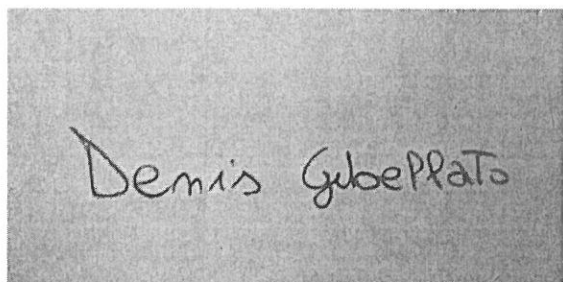 Denis Gubellato